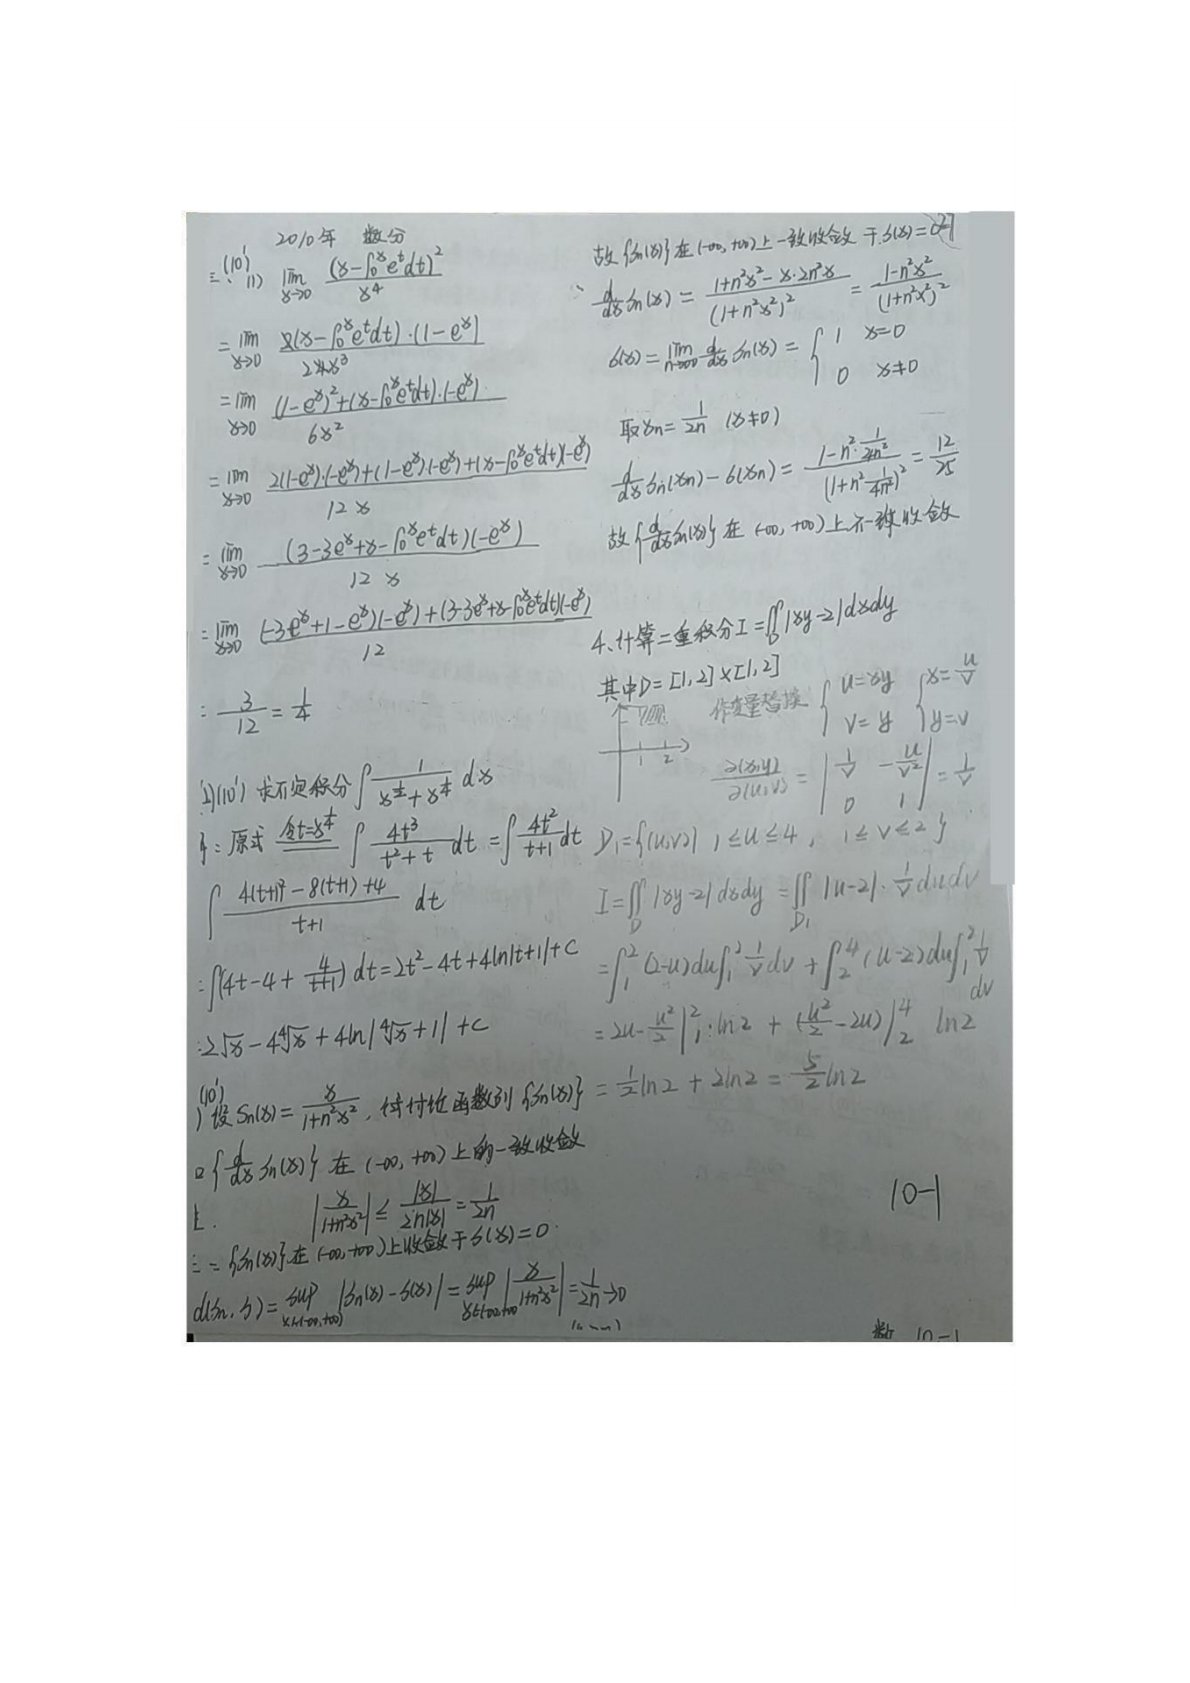 2010年 数分
三、(10') (1) lim_{x→0} (x-∫_0^x e^t dt)^2 / x^4
= lim_{x→0} 2(x-∫_0^x e^t dt)·(1-e^x) / 4x^3
= lim_{x→0} (1-e^x)^2+(x-∫_0^x e^t dt)·(-e^x) / 6x^2
= lim_{x→0} 2(1-e^x)·(-e^x)+(1-e^x)(-e^x)+(x-∫_0^x e^t dt)(-e^x) / 12x
= lim_{x→0} (3-3e^x+x-∫_0^x e^t dt)(-e^x) / 12x
= lim_{x→0} (-3e^x+1-e^x)(-e^x)+(3-3e^x+x-∫_0^x e^t dt)(-e^x) / 12
= 3/12 = 1/4
2)(10') 求不定积分∫ 1/(x^{1/2}+x^{1/4}) dx
: 原式 令t=x^{1/4} ∫ 4t^3/(t^2+t) dt = ∫ 4t^2/(t+1) dt
∫ (4(t+1)^2-8(t+1)+4)/(t+1) dt
=∫(4t-4+4/(t+1)) dt=2t^2-4t+4ln|t+1|+C
=2√x-4∜x+4ln|∜x+1|+C
(10')
) 设Sn(x)= x/(1+n^2x^2), 讨论函数列{Sn(x)}
{d/dx Sn(x)} 在 (-∞,+∞)上的一致收敛
|x/(1+n^2x^2)| ≤ |x|/(2n|x|) = 1/(2n)
{Sn(x)}在(-∞,+∞)上收敛于S(x)=0
d(Sn, S)= sup_{x∈(-∞,+∞)} |Sn(x)-S(x)| = sup_{x∈(-∞,+∞)} |x/(1+n^2x^2)| = 1/(2n)→0
故{Sn(x)}在(-∞,+∞)上一致收敛于S(x)=0
d/dx Sn(x) = (1+n^2x^2-x·2n^2x)/(1+n^2x^2)^2 = (1-n^2x^2)/(1+n^2x^2)^2
6(x)= lim_{n→∞} d/dx Sn(x) = { 1 x=0
0 x≠0
取xn= 1/2n (x≠0)
d/dx Sn(xn)-6(xn)= (1-n^2·1/4n^2)/(1+n^2·1/4n^2)^2 = 12/25
故{d/dx Sn(x)}在(-∞,+∞)上不一致收敛
4、计算二重积分I=∬_D |xy-2|dxdy
其中D=[1,2]×[1,2]
作变量替换 { u=xy { x=u/v
v=y y=v
1 2
∂(x,y)/∂(u,v) = | 1/v -u/v^2 | = 1/v
0 1
D_1={(u,v)| 1≤u≤4, 1≤v≤2}
I=∬_D |xy-2|dxdy =∬_{D_1} |u-2|·1/v dudv
=∫_1^2 (2-u)du∫_1^2 1/v dv+∫_2^4 (u-2)du∫_1^2 1/v dv
=2u-u^2/2|_1^2·ln2+(u^2/2-2u)|_2^4 ln2
=1/2 ln2+2ln2=5/2 ln2
10-1
数 10-1